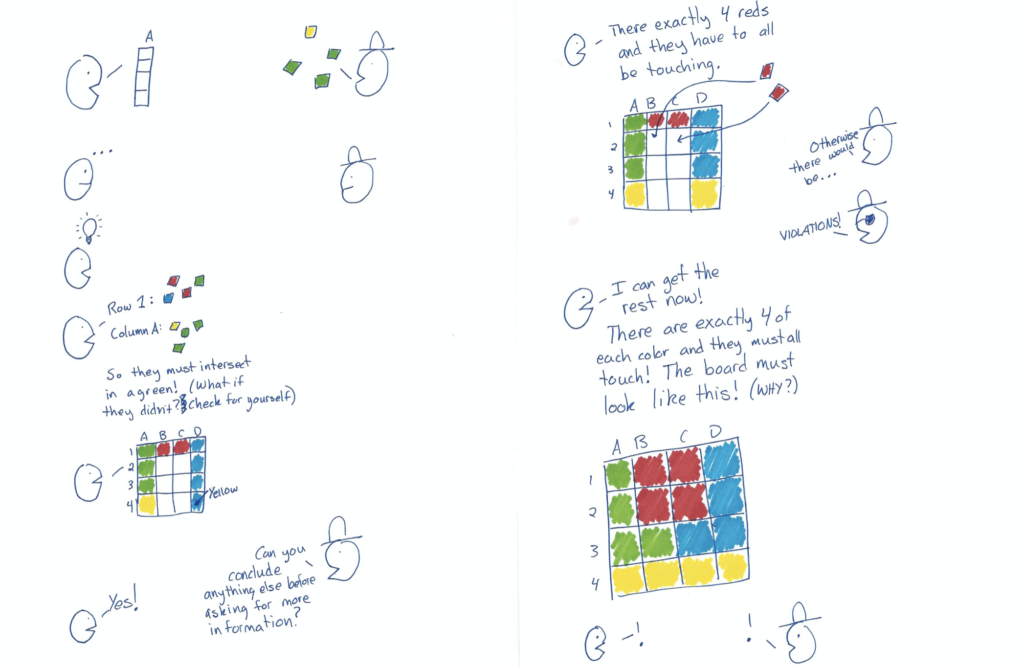 A
...
Row 1:
Column A:
So they must intersect
in a green! (What if
they didn't? Check for yourself)
A B C D
1
2
3
4
Yellow
Can you
conclude
anything else before
asking for more
information?
Yes!
There exactly 4 reds
and they have to all
be touching.
A B C D
1
2
3
4
Otherwise
there would
be...
VIOLATIONS!
I can get the
rest now!
There are exactly 4 of
each color and they must all
touch! The board must
look like this! (WHY?)
A B C D
1
2
3
4
!
!